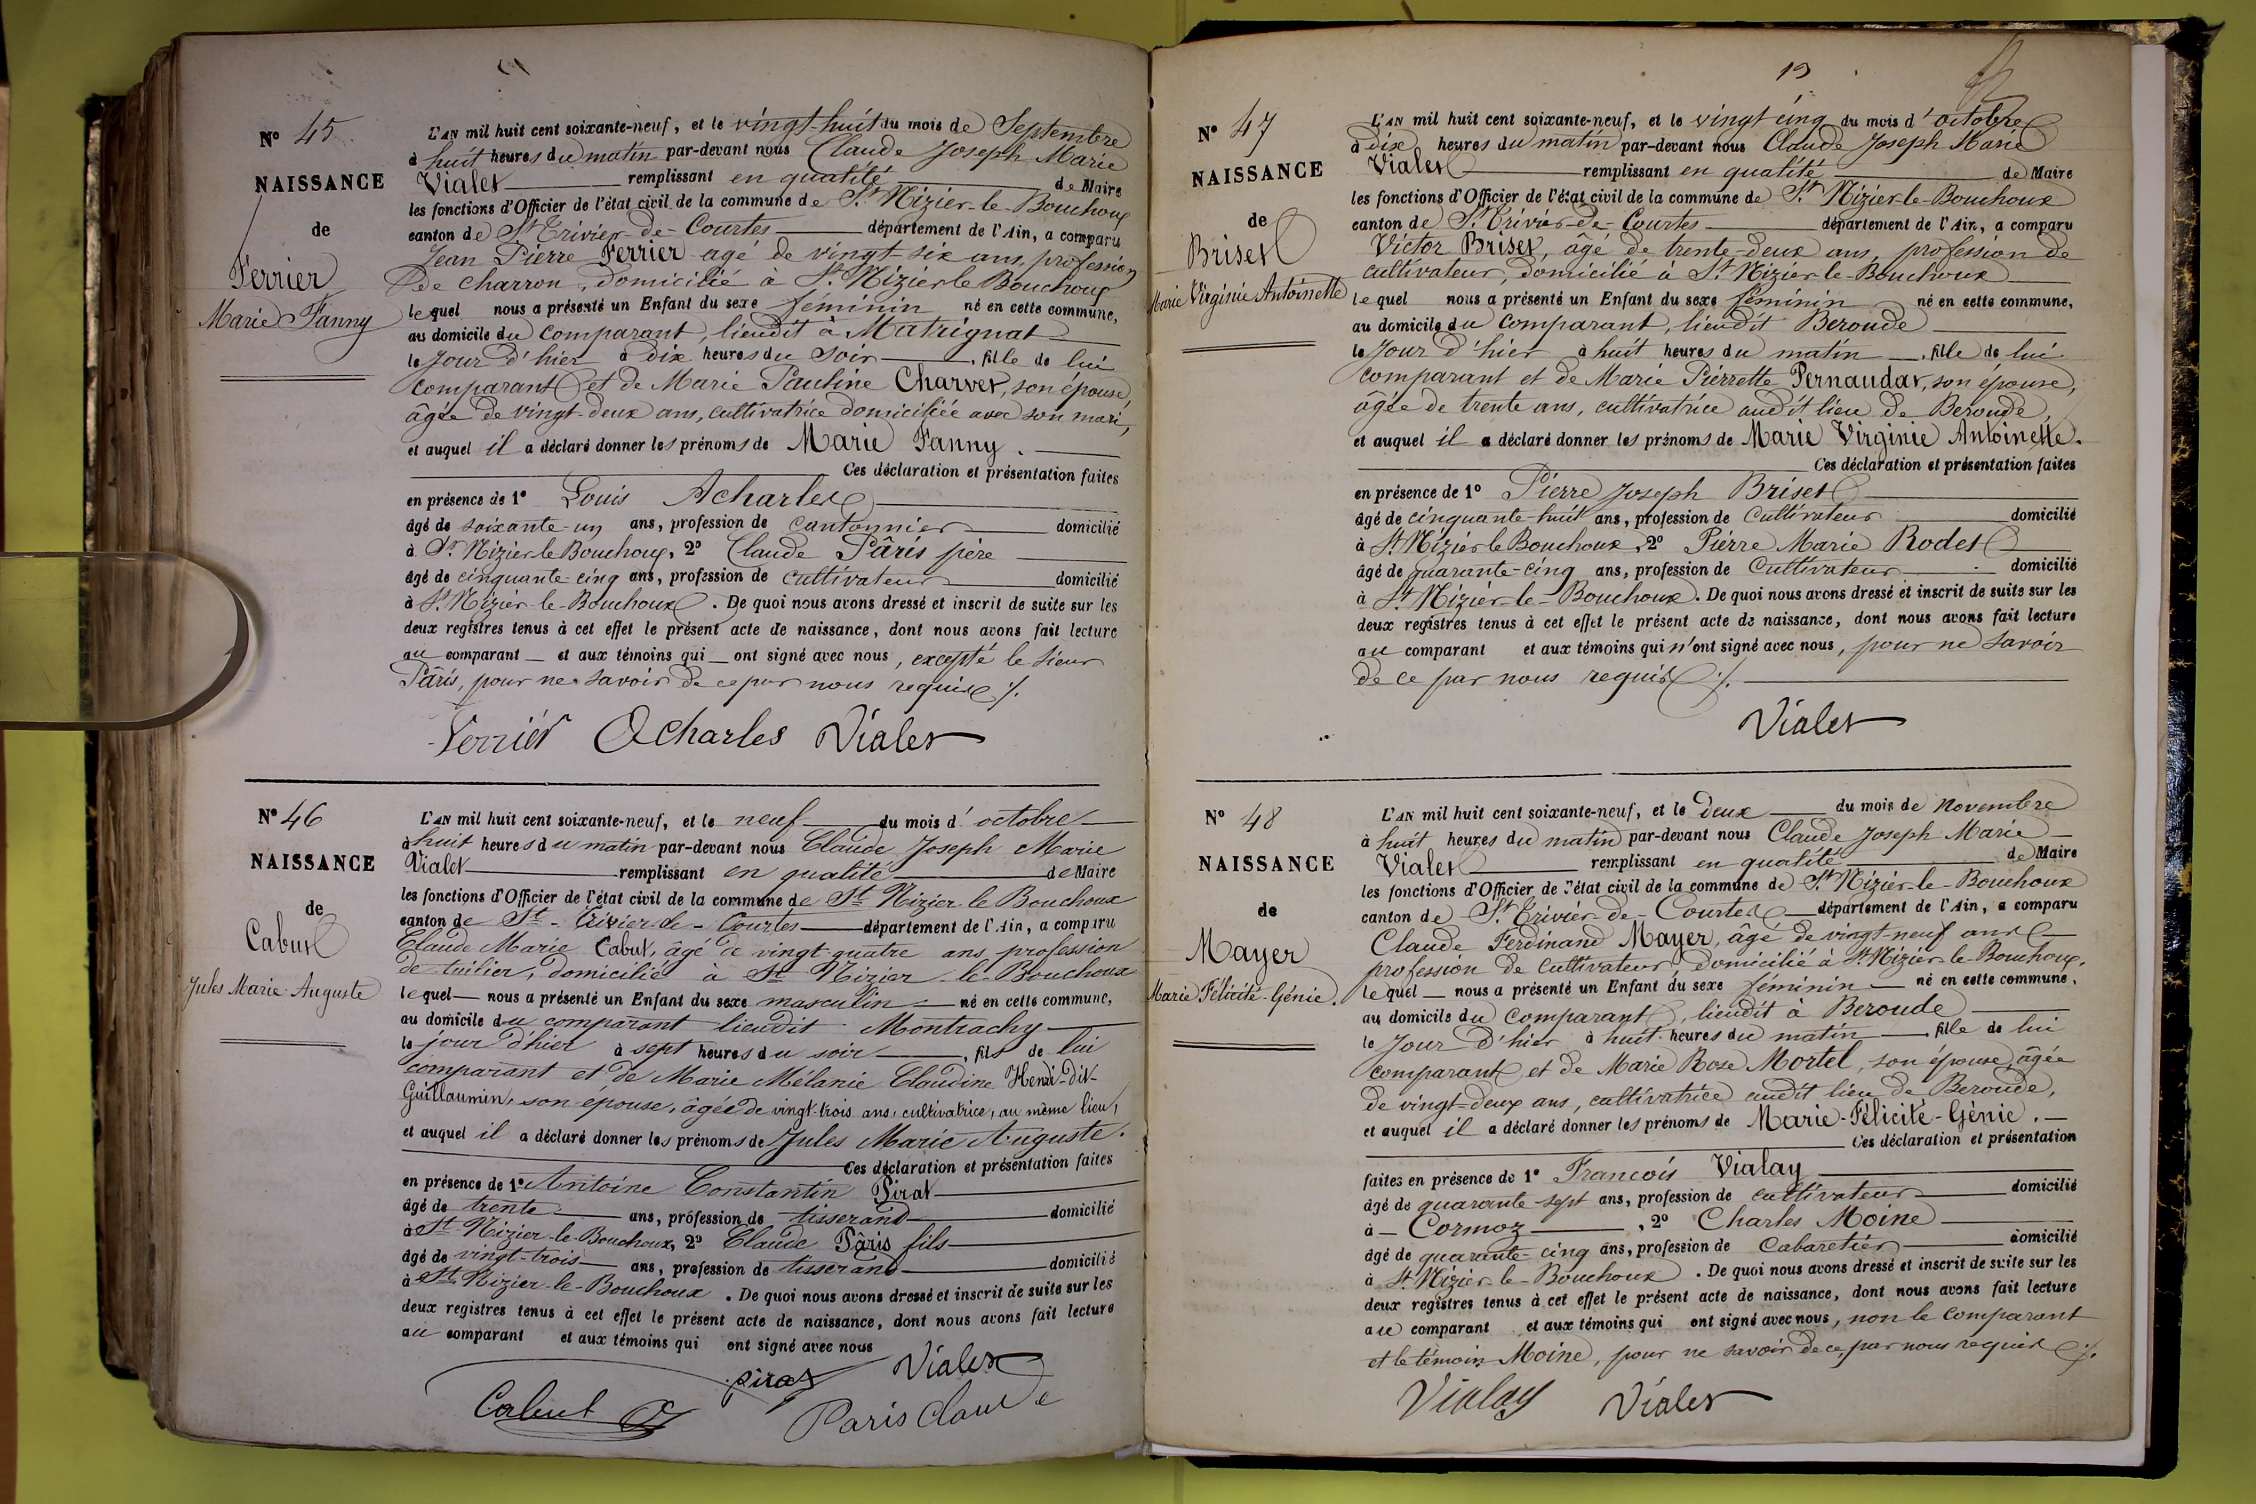 N° 45
NAISSANCE
de
Ferrier
Marie Fanny
L'AN mil huit cent soixante-neuf, et le vingt-huit du mois de Septembre
à huit heures du matin par-devant nous Claude Joseph Marie
Vialet remplissant en qualité de Maire
les fonctions d'Officier de l'état civil de la commune de St Nizier-le-Bouchoux
canton de St Trivier-de-Courtes département de l'Ain, a comparu
Jean Pierre Ferrier agé de vingt six ans, profession
de charron, domicilié à St Nizier le Bouchoux
lequel nous a présenté un Enfant du sexe féminin né en cette commune,
au domicile du comparant, lieudit à Matrignat
le Jour d'hier à dix heures du soir , fille de lui
comparant et de Marie Pauline Charvet, son épouse,
âgée de vingt-deux ans, cultivatrice domiciliée avec son mari,
et auquel il a déclaré donner les prénoms de Marie Fanny.
Ces déclaration et présentation faites
en présence de 1° Louis Acharles
âgé de soixante-un ans, profession de cantonnier domicilié
à St Nizier-le Bouchoux, 2° Claude Pâris père
âgé de cinquante-cinq ans, profession de cultivateur domicilié
à St Nizier-le-Bouchoux. De quoi nous avons dressé et inscrit de suite sur les
deux registres tenus à cet effet le présent acte de naissance, dont nous avons fait lecture
au comparant et aux témoins qui ont signé avec nous, excepté le sieur
Pâris, pour ne savoir de ce par nous requis ./.
Ferrier Acharles Vialet
N° 46
NAISSANCE
de
Cabut
Jules Marie Auguste
L'AN mil huit cent soixante-neuf, et le neuf du mois d'octobre
à huit heures du matin par-devant nous Claude Joseph Marie
Vialet remplissant en qualité de Maire
les fonctions d'Officier de l'état civil de la commune de St Nizier le Bouchoux
canton de St-Trivier-de-Courtes département de l'Ain, a comparu
Claude Marie Cabut, âgé de vingt-quatre ans profession
de tuilier, domicilié à St Nizier-le-Bouchoux
lequel nous a présenté un Enfant du sexe masculin né en cette commune,
au domicile du comparant lieudit Montrachy
le jour d'hier à sept heures du soir , fils de lui
comparant et de Marie Mélanie Claudine Henri-dit-
Guillaumin, son épouse, âgée de vingt-trois ans, cultivatrice, au même lieu,
et auquel il a déclaré donner les prénoms de Jules Marie Auguste.
Ces déclaration et présentation faites
en présence de 1° Antoine Constantin Pirat
âgé de trente ans, profession de tisserand domicilié
à St Nizier-le-Bouchoux, 2° Claude Pâris fils
âgé de vingt-trois ans, profession de tisserand domicilié
à St Nizier-le-Bouchoux. De quoi nous avons dressé et inscrit de suite sur les
deux registres tenus à cet effet le présent acte de naissance, dont nous avons fait lecture
au comparant et aux témoins qui ont signé avec nous
pirat Vialet
Cabut Paris Claude
19
N° 47
NAISSANCE
de
Briset
Marie Virginie Antoinette
L'AN mil huit cent soixante-neuf, et le vingt cinq du mois d'octobre
à dix heures du matin par-devant nous Claude Joseph Marie
Vialet remplissant en qualité de Maire
les fonctions d'Officier de l'état civil de la commune de St Nizier-le-Bouchoux
canton de St Trivier-de-Courtes département de l'Ain, a comparu
Victor Briset, âgé de trente-deux ans, profession de
cultivateur, domicilié à St Nizier-le-Bouchoux
lequel nous a présenté un Enfant du sexe féminin né en cette commune,
au domicile du comparant, lieudit Beroude
le Jour d'hier à huit heures du matin , fille de lui
comparant et de Marie Pierrette Pernaudat, son épouse,
âgée de trente ans, cultivatrice audit lieu de Beroude,
et auquel il a déclaré donner les prénoms de Marie Virginie Antoinette.
Ces déclaration et présentation faites
en présence de 1° Pierre Joseph Briset
âgé de cinquante-huit ans, profession de Cultivateur domicilié
à St Nizier le Bouchoux, 2° Pierre Marie Rodet
âgé de quarante-cinq ans, profession de Cultivateur domicilié
à St Nizier-le-Bouchoux. De quoi nous avons dressé et inscrit de suite sur les
deux registres tenus à cet effet le présent acte de naissance, dont nous avons fait lecture
au comparant et aux témoins qui n'ont signé avec nous, pour ne savoir
de ce par nous requis ./.
Vialet
N° 48
NAISSANCE
de
Mayer
Marie Félicité-Génie.
L'AN mil huit cent soixante-neuf, et le Deux du mois de novembre
à huit heures du matin par-devant nous Claude Joseph Marie
Vialet remplissant en qualité de Maire
les fonctions d'Officier de l'état civil de la commune de St Nizier-le-Bouchoux
canton de St Trivier-de-Courtes département de l'Ain, a comparu
Claude Ferdinand Mayer, âgé de vingt-neuf ans
profession de Cultivateur, domicilié à St Nizier-le-Bouchoux.
lequel nous a présenté un Enfant du sexe féminin né en cette commune,
au domicile du comparant, lieudit à Beroude
le Jour d'hier à huit heures du matin , fille de lui
comparant et de Marie Rose Mortel, son épouse, âgée
de vingt-deux ans, cultivatrice audit lieu de Beroude,
et auquel il a déclaré donner les prénoms de Marie-Félicité-Génie.
Ces déclaration et présentation
faites en présence de 1° Francois Vialay
âgé de quarante-sept ans, profession de cultivateur domicilié
à Cormoz , 2° Charles Moine
âgé de quarante-cinq ans, profession de Cabaretier domicilié
à St Nizier-le-Bouchoux. De quoi nous avons dressé et inscrit de suite sur les
deux registres tenus à cet effet le présent acte de naissance, dont nous avons fait lecture
au comparant et aux témoins qui ont signé avec nous, non le comparant
et le témoin Moine, pour ne savoir de ce par nous requis ./.
Vialay Vialet